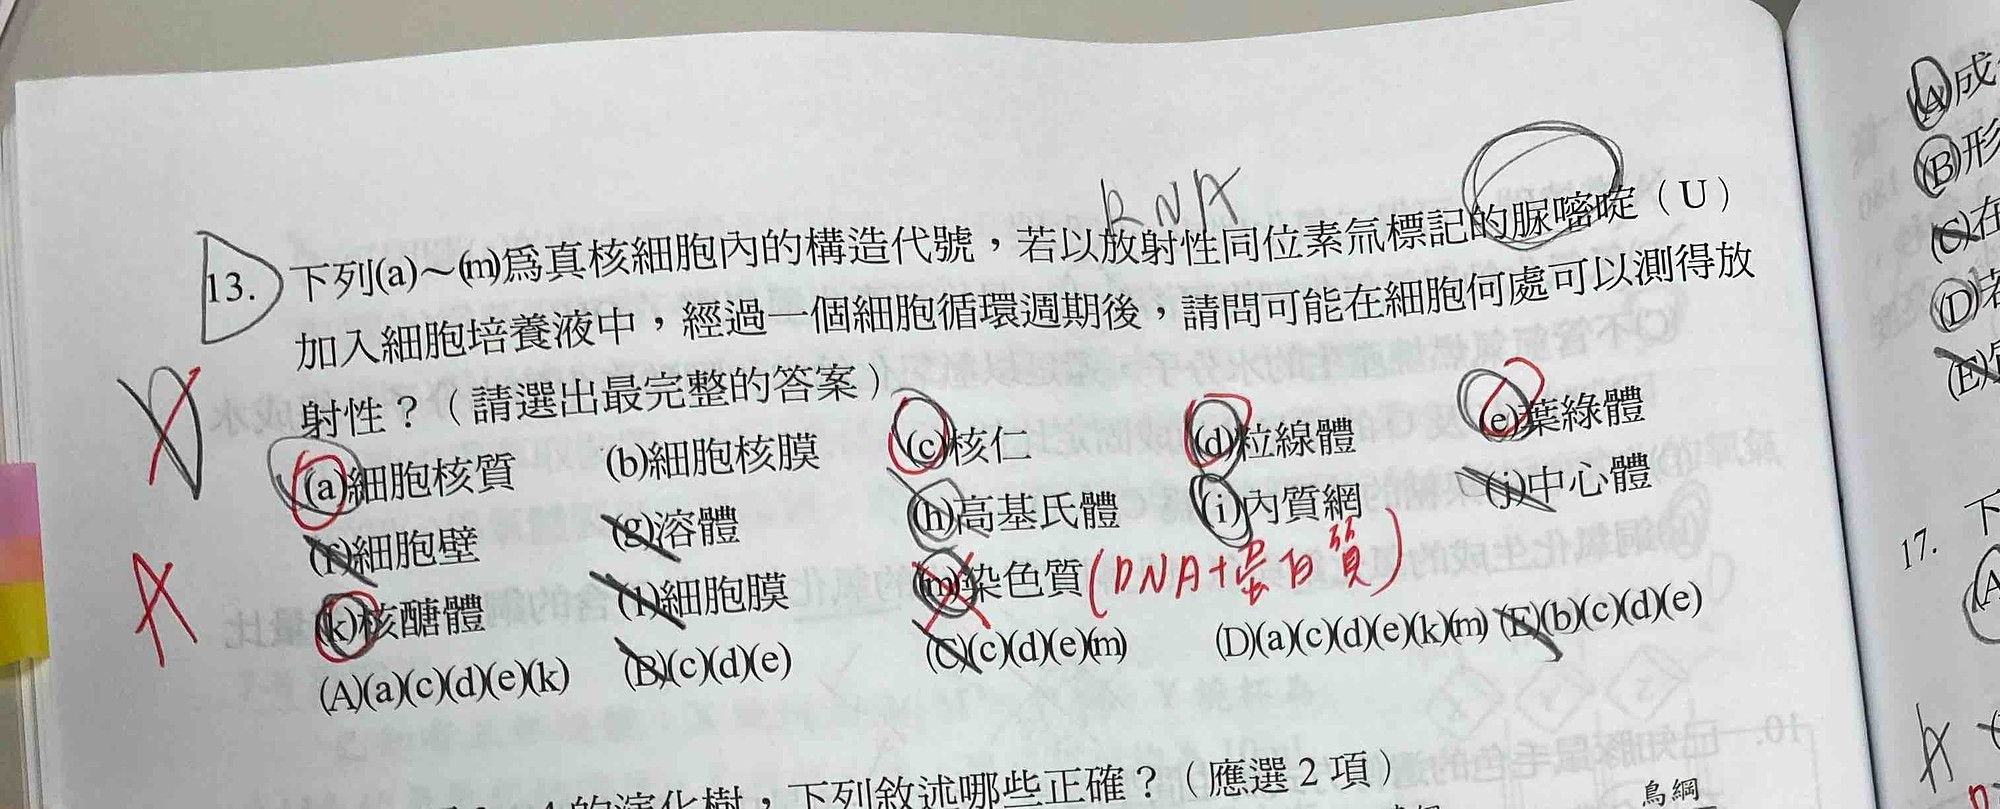 RNA
13. 下列(a)～(m)為真核細胞內的構造代號，若以放射性同位素氚標記的脲嘧啶（U）
加入細胞培養液中，經過一個細胞循環週期後，請問可能在細胞何處可以測得放
射性？（請選出最完整的答案）
(a)細胞核質 (b)細胞核膜 (c)核仁 (d)粒線體 (e)葉綠體
(f)細胞壁 (g)溶體 (h)高基氏體 (i)內質網 (j)中心體
(k)核醣體 (l)細胞膜 (m)染色質(DNA+蛋白質)
(A)(a)(c)(d)(e)(k) (B)(c)(d)(e) (C)(c)(d)(e)(m) (D)(a)(c)(d)(e)(k)(m) (E)(b)(c)(d)(e)
D
A
的演化樹，下列敘述哪些正確？（應選2項）
鳥綱
(A)成
(B)形
(C)在
(D)若
(E)
17. 下
(A
A